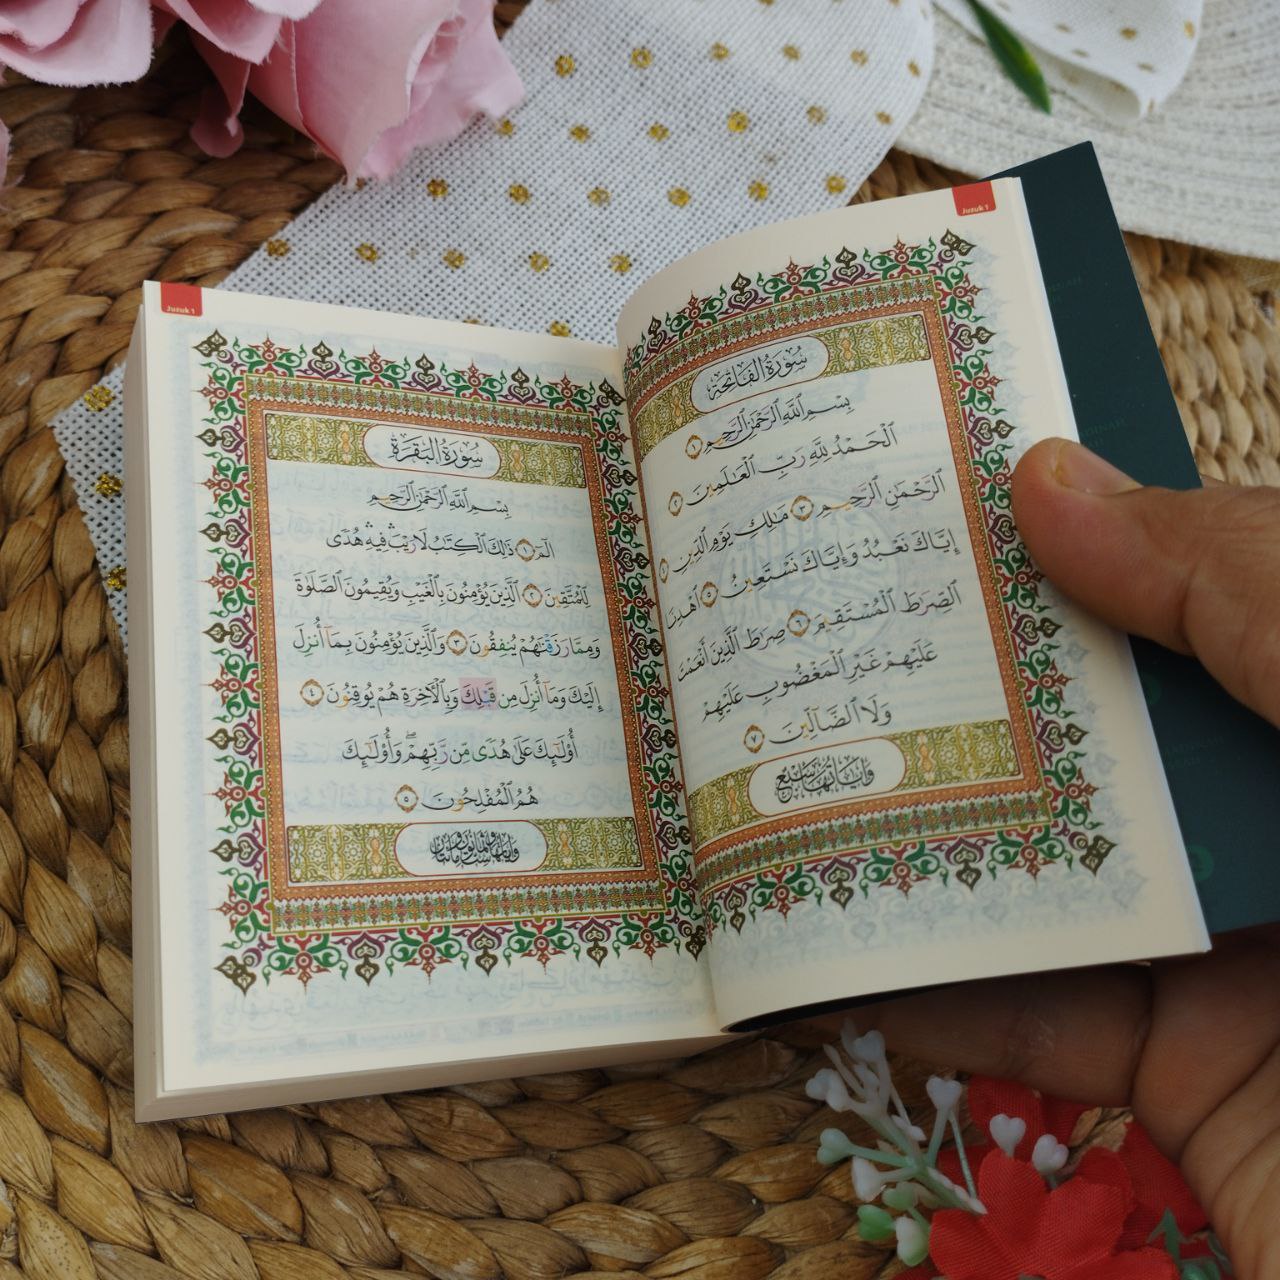 Juzuk 1
سُورَةُ الْفَاتِحَةِ
بِسْمِ اللَّهِ الرَّحْمَٰنِ الرَّحِيمِ ١
الْحَمْدُ لِلَّهِ رَبِّ الْعَالَمِينَ ٢
الرَّحْمَٰنِ الرَّحِيمِ ٣ مَالِكِ يَوْمِ الدِّينِ ٤
إِيَّاكَ نَعْبُدُ وَإِيَّاكَ نَسْتَعِينُ ٥ اهْدِنَا
الصِّرَاطَ الْمُسْتَقِيمَ ٦ صِرَاطَ الَّذِينَ أَنْعَمْتَ
عَلَيْهِمْ غَيْرِ الْمَغْضُوبِ عَلَيْهِمْ
وَلَا الضَّالِّينَ ٧
وَآيَاتُهَا سَبْعٌ
Juzuk 1
سُورَةُ الْبَقَرَةِ
بِسْمِ اللَّهِ الرَّحْمَٰنِ الرَّحِيمِ
الٓمٓ ١ ذَٰلِكَ الْكِتَٰبُ لَا رَيْبَ ۛ فِيهِ ۛ هُدًى
لِّلْمُتَّقِينَ ٢ الَّذِينَ يُؤْمِنُونَ بِالْغَيْبِ وَيُقِيمُونَ الصَّلَوٰةَ
وَمِمَّا رَزَقْنَٰهُمْ يُنفِقُونَ ٣ وَالَّذِينَ يُؤْمِنُونَ بِمَآ أُنزِلَ
إِلَيْكَ وَمَآ أُنزِلَ مِن قَبْلِكَ وَبِالْآخِرَةِ هُمْ يُوقِنُونَ ٤
أُوْلَٰٓئِكَ عَلَىٰ هُدًى مِّن رَّبِّهِمْ ۖ وَأُوْلَٰٓئِكَ
هُمُ الْمُفْلِحُونَ ٥